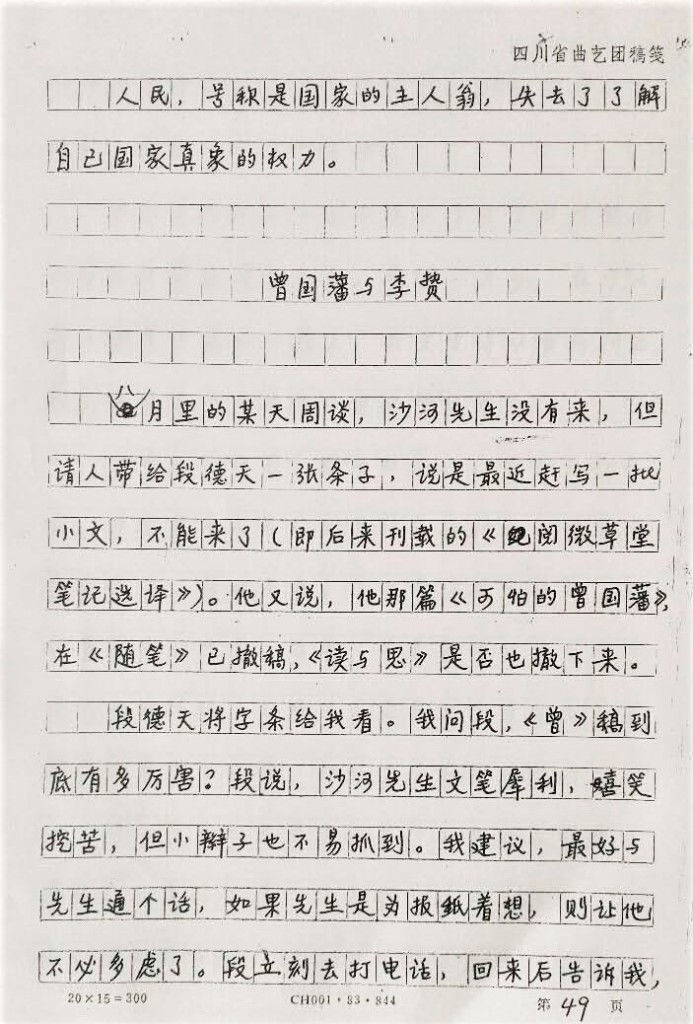 四川省曲艺团稿笺
人民，号称是国家的主人翁，失去了了解
自己国家真象的权力。
曾国藩与李贽
八月里的某天周谈，沙河先生没有来，但
请人带给段德天一张条子，说是最近赶写一批
小文，不能来了（即后来刊载的《阅微草堂
笔记选译》）。他又说，他那篇《可怕的曾国藩》，
在《随笔》已撤稿，《读与思》是否也撤下来。
段德天将字条给我看。我问段，《曾》稿到
底有多厉害？段说，沙河先生文笔犀利，嬉笑
挖苦，但小辫子也不易抓到。我建议，最好与
先生通个话，如果先生是为报纸着想，则让他
不必多虑了。段立刻去打电话，回来后告诉我，
20×15=300 CH001·83·844 第 49 页